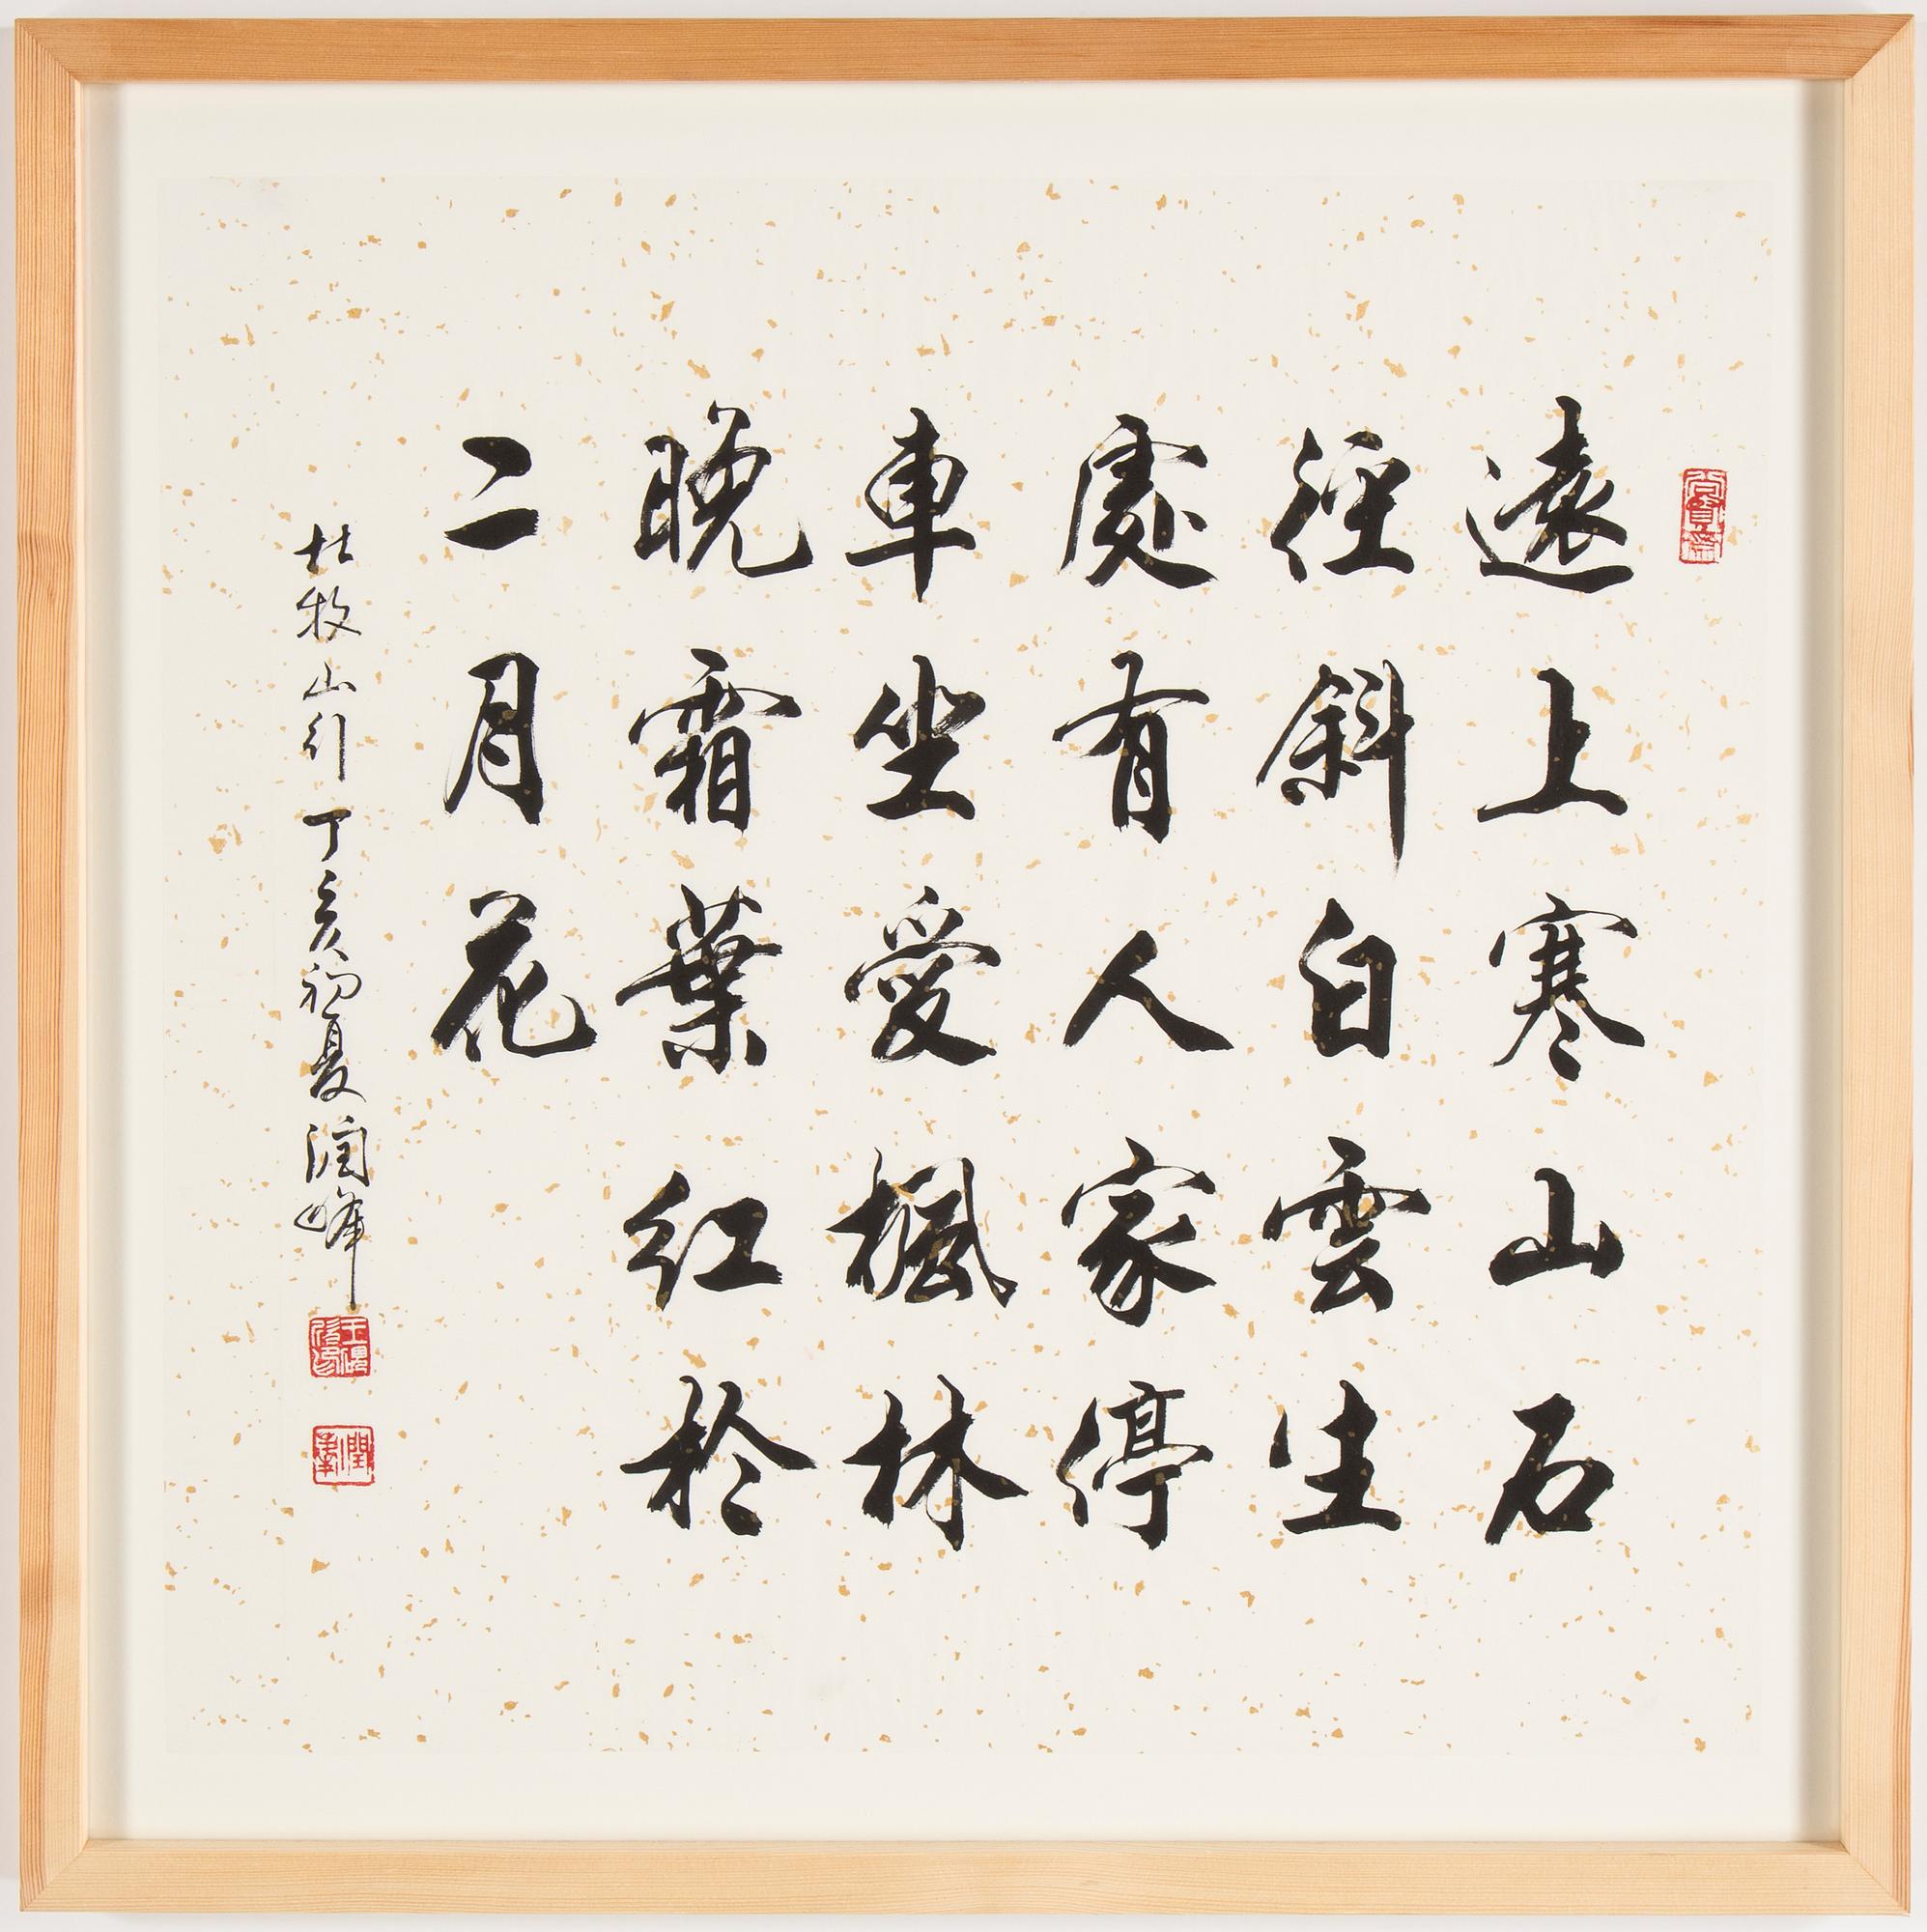 遠上寒山石
徑斜白雲生
處有人家停
車坐愛楓林
晚霜葉紅於
二月花
杜牧山行丁亥初夏潤峰